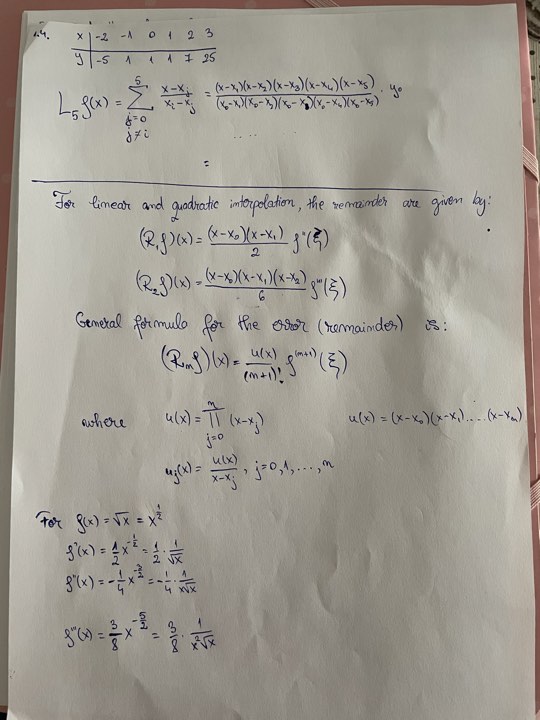 x | -2 -1 0 1 2 3
y | -5 1 1 1 7 25
L₅f(x) = ∑_{j=0, j≠i}^{5} (x-x_j)/(x_i-x_j) = (x-x₁)(x-x₂)(x-x₃)(x-x₄)(x-x₅)/(x₀-x₁)(x₀-x₂)(x₀-x₃)(x₀-x₄)(x₀-x₅) · y₀
....
=
For linear and quadratic interpolation, the remainder are given by:
(R₁f)(x) = (x-x₀)(x-x₁)/2 f''(ξ)
(R₂f)(x) = (x-x₀)(x-x₁)(x-x₂)/6 f'''(ξ)
General formula for the error (remainder) is:
(R_m f)(x) = u(x)/(m+1)! f^(m+1)(ξ)
where u(x) = ∏_{j=0}^{m} (x-x_j) u(x) = (x-x₀)(x-x₁)....(x-x_m)
u_j(x) = u(x)/(x-x_j), j=0,1,...,m
For f(x) = √x = x^(1/2)
f'(x) = 1/2 x^(-1/2) = 1/2 · 1/√x
f''(x) = -1/4 x^(-3/2) = -1/4 · 1/(x√x)
f'''(x) = 3/8 x^(-5/2) = 3/8 · 1/(x²√x)